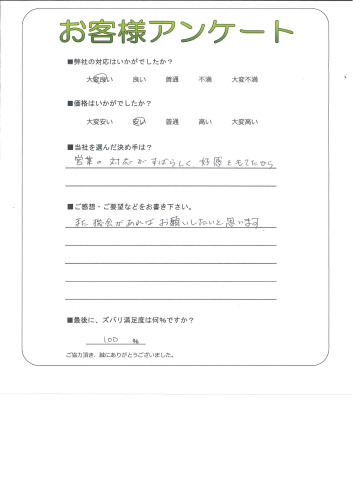 お客様アンケート
■弊社の対応はいかがでしたか？
大変良い 良い 普通 不満 大変不満
■価格はいかがでしたか？
大変安い 安い 普通 高い 大変高い
■当社を選んだ決め手は？
営業の対応がすばらしく、好感をもてたから
■ご感想・ご要望などをお書き下さい。
また機会があればお願いしたいと思います
■最後に、ズバリ満足度は何％ですか？
100 ％
ご協力頂き、誠にありがとうございました。